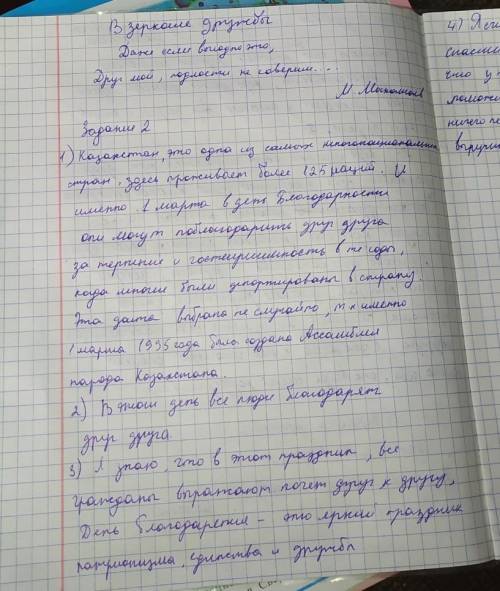 В зеркале дружбы
Даже если выгодно это,
Друг мой, подлости не говорим....
М. Макатаев
Задание 2
1) Казахстан, это одна из самых многонациональных
стран. здесь проживает более 125 наций. И
именно 1 марта в день Благодарности
они могут поблагодарить друг друга
за терпение и гостеприимность в те годы,
когда многие были депортированы в страну.
Эта дата выбрана не случайно, т к именно
1 марта 1995 года была создана Ассамблея
народа Казахстана.
2) В этот день все люди благодарят
друг друга
3) Я знаю, что в этот праздник, все
граждане выражают почет друг к другу,
День благодарения - это яркий праздник
патриотизма, единства и дружбы
4)
спасиб
что у
помож
ничего не
выручи